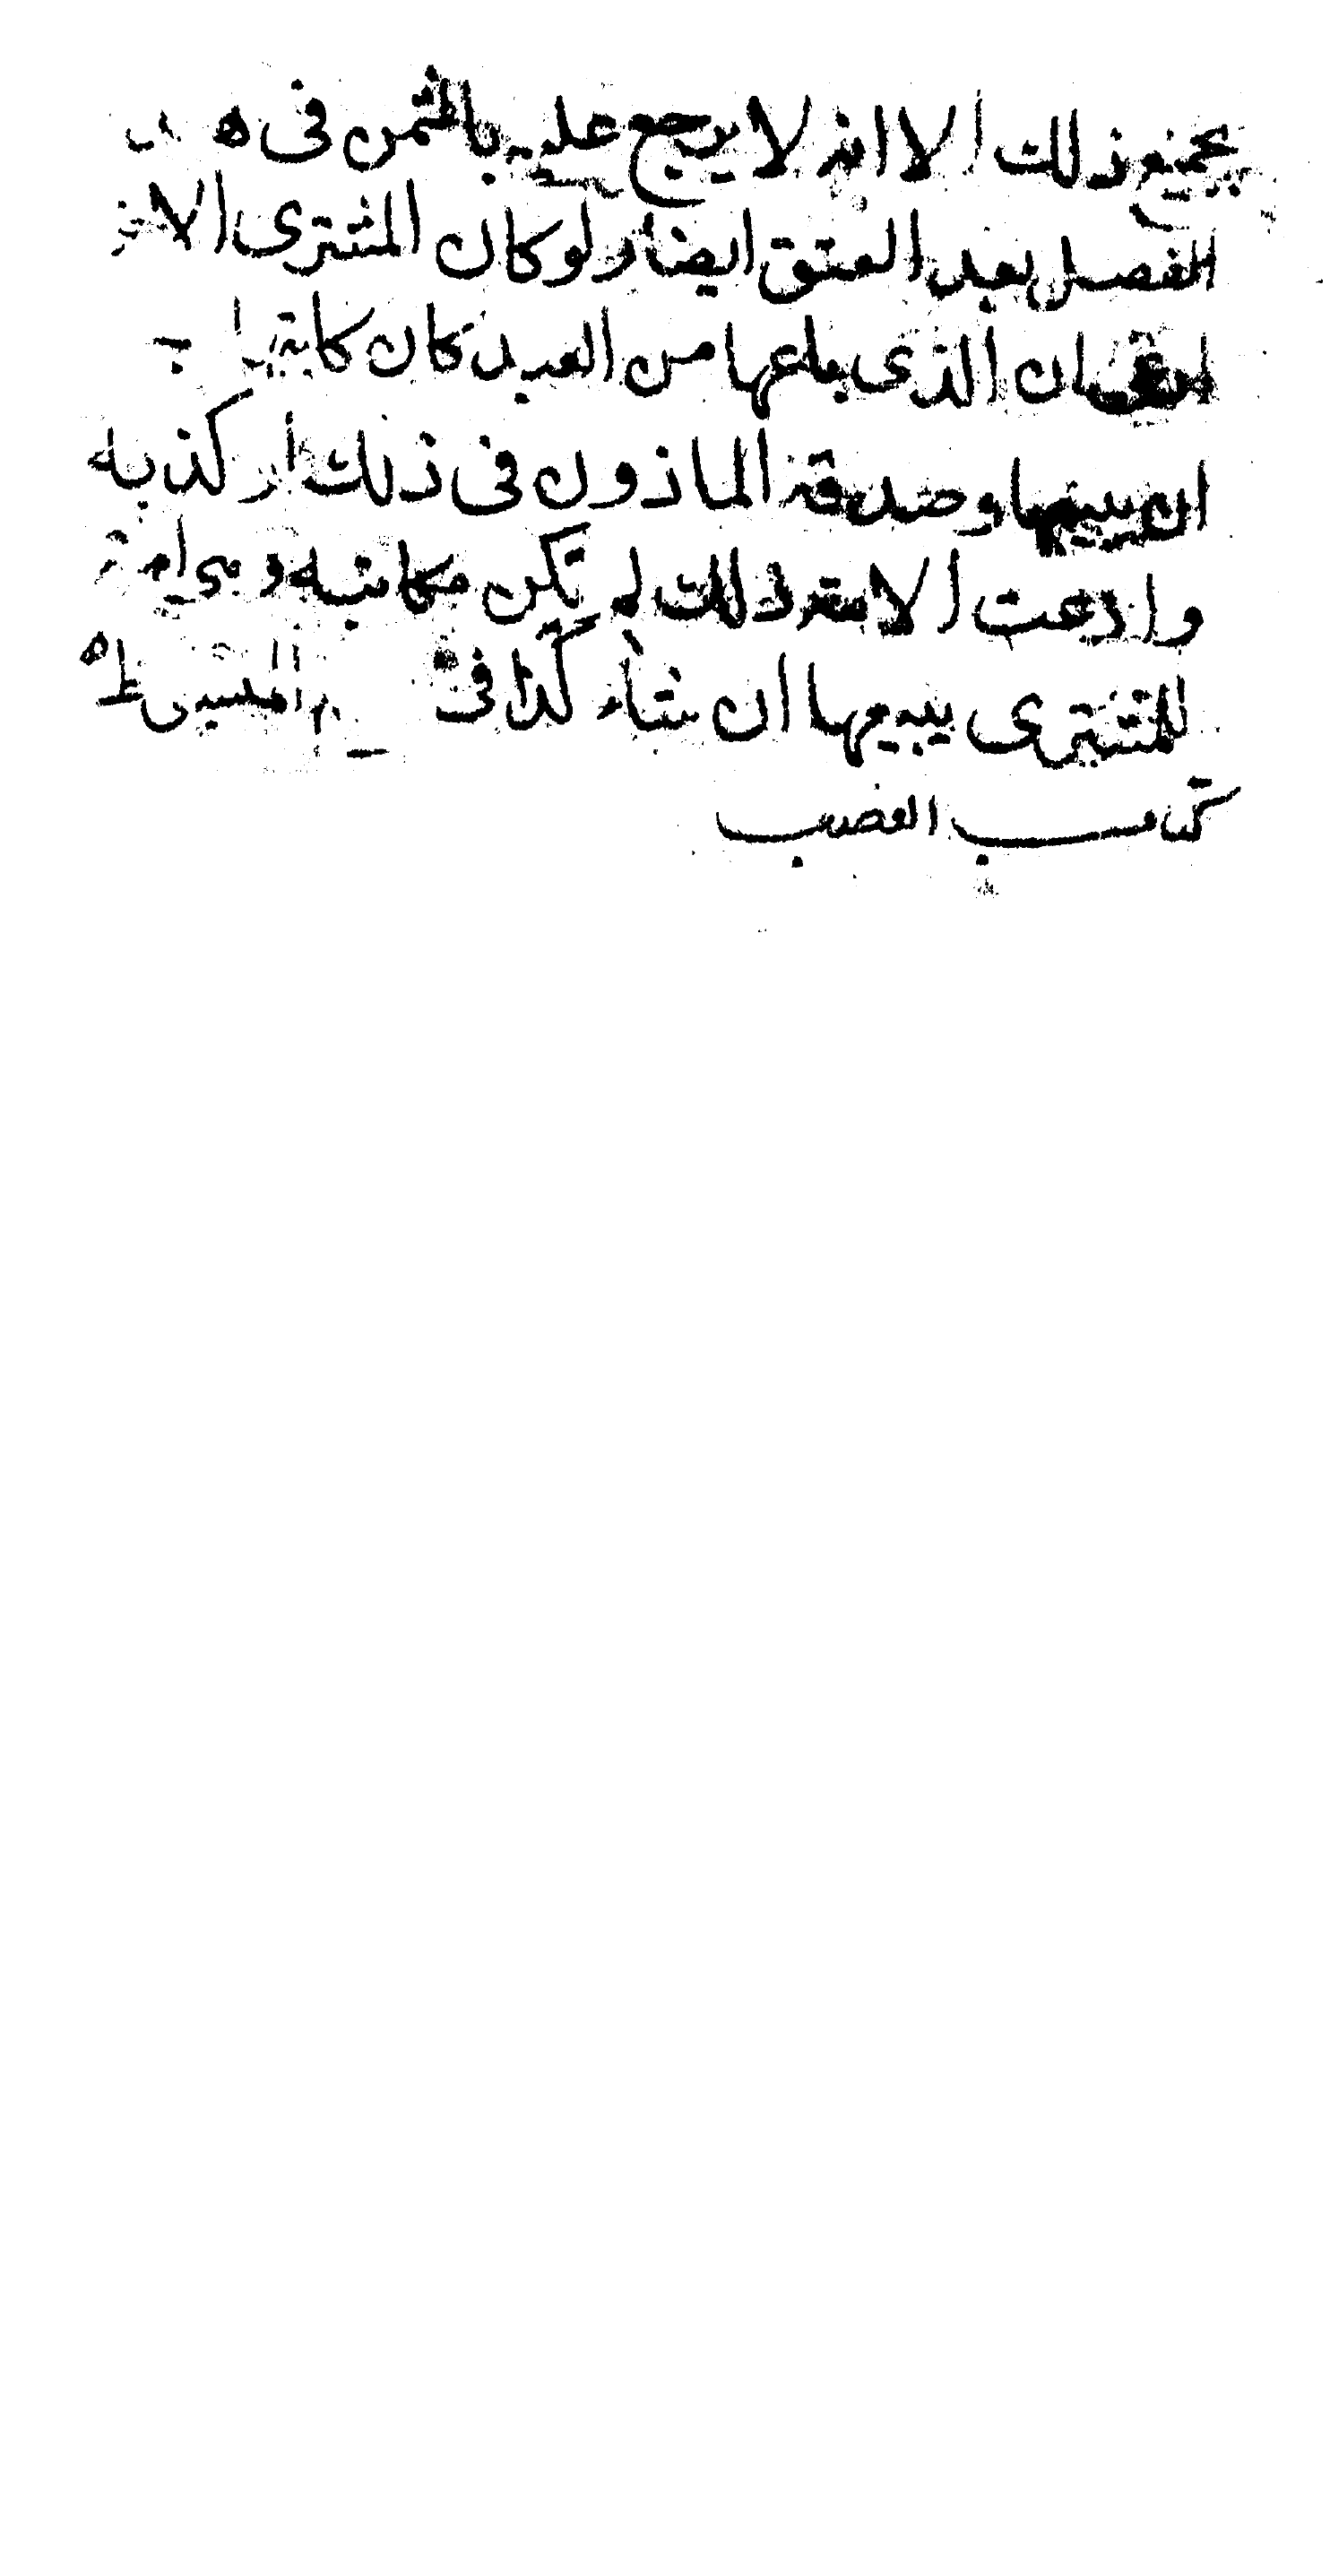 بجميع ذلك الا انه لا يرجع عليه بالثمن في
الفصل بعد العتق ايضا ولو كان المشترى الا
ان الذى باعها من العبد كان كاتبها
ان يبيعها وصدقه الماذون فى ذلك او كذبه
وادعت الامة ذلك لم تكن مكاتبة وهى امة
للمشترى يبيعها ان شاء كذا فى المبسوط
كتاب الغصب